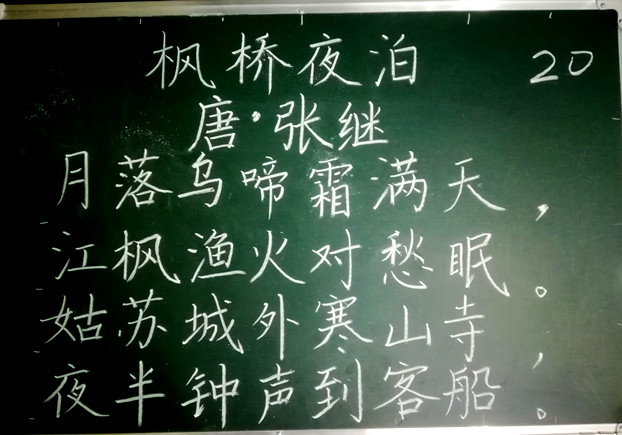 枫桥夜泊 20
唐·张继
月落乌啼霜满天，
江枫渔火对愁眠。
姑苏城外寒山寺，
夜半钟声到客船。